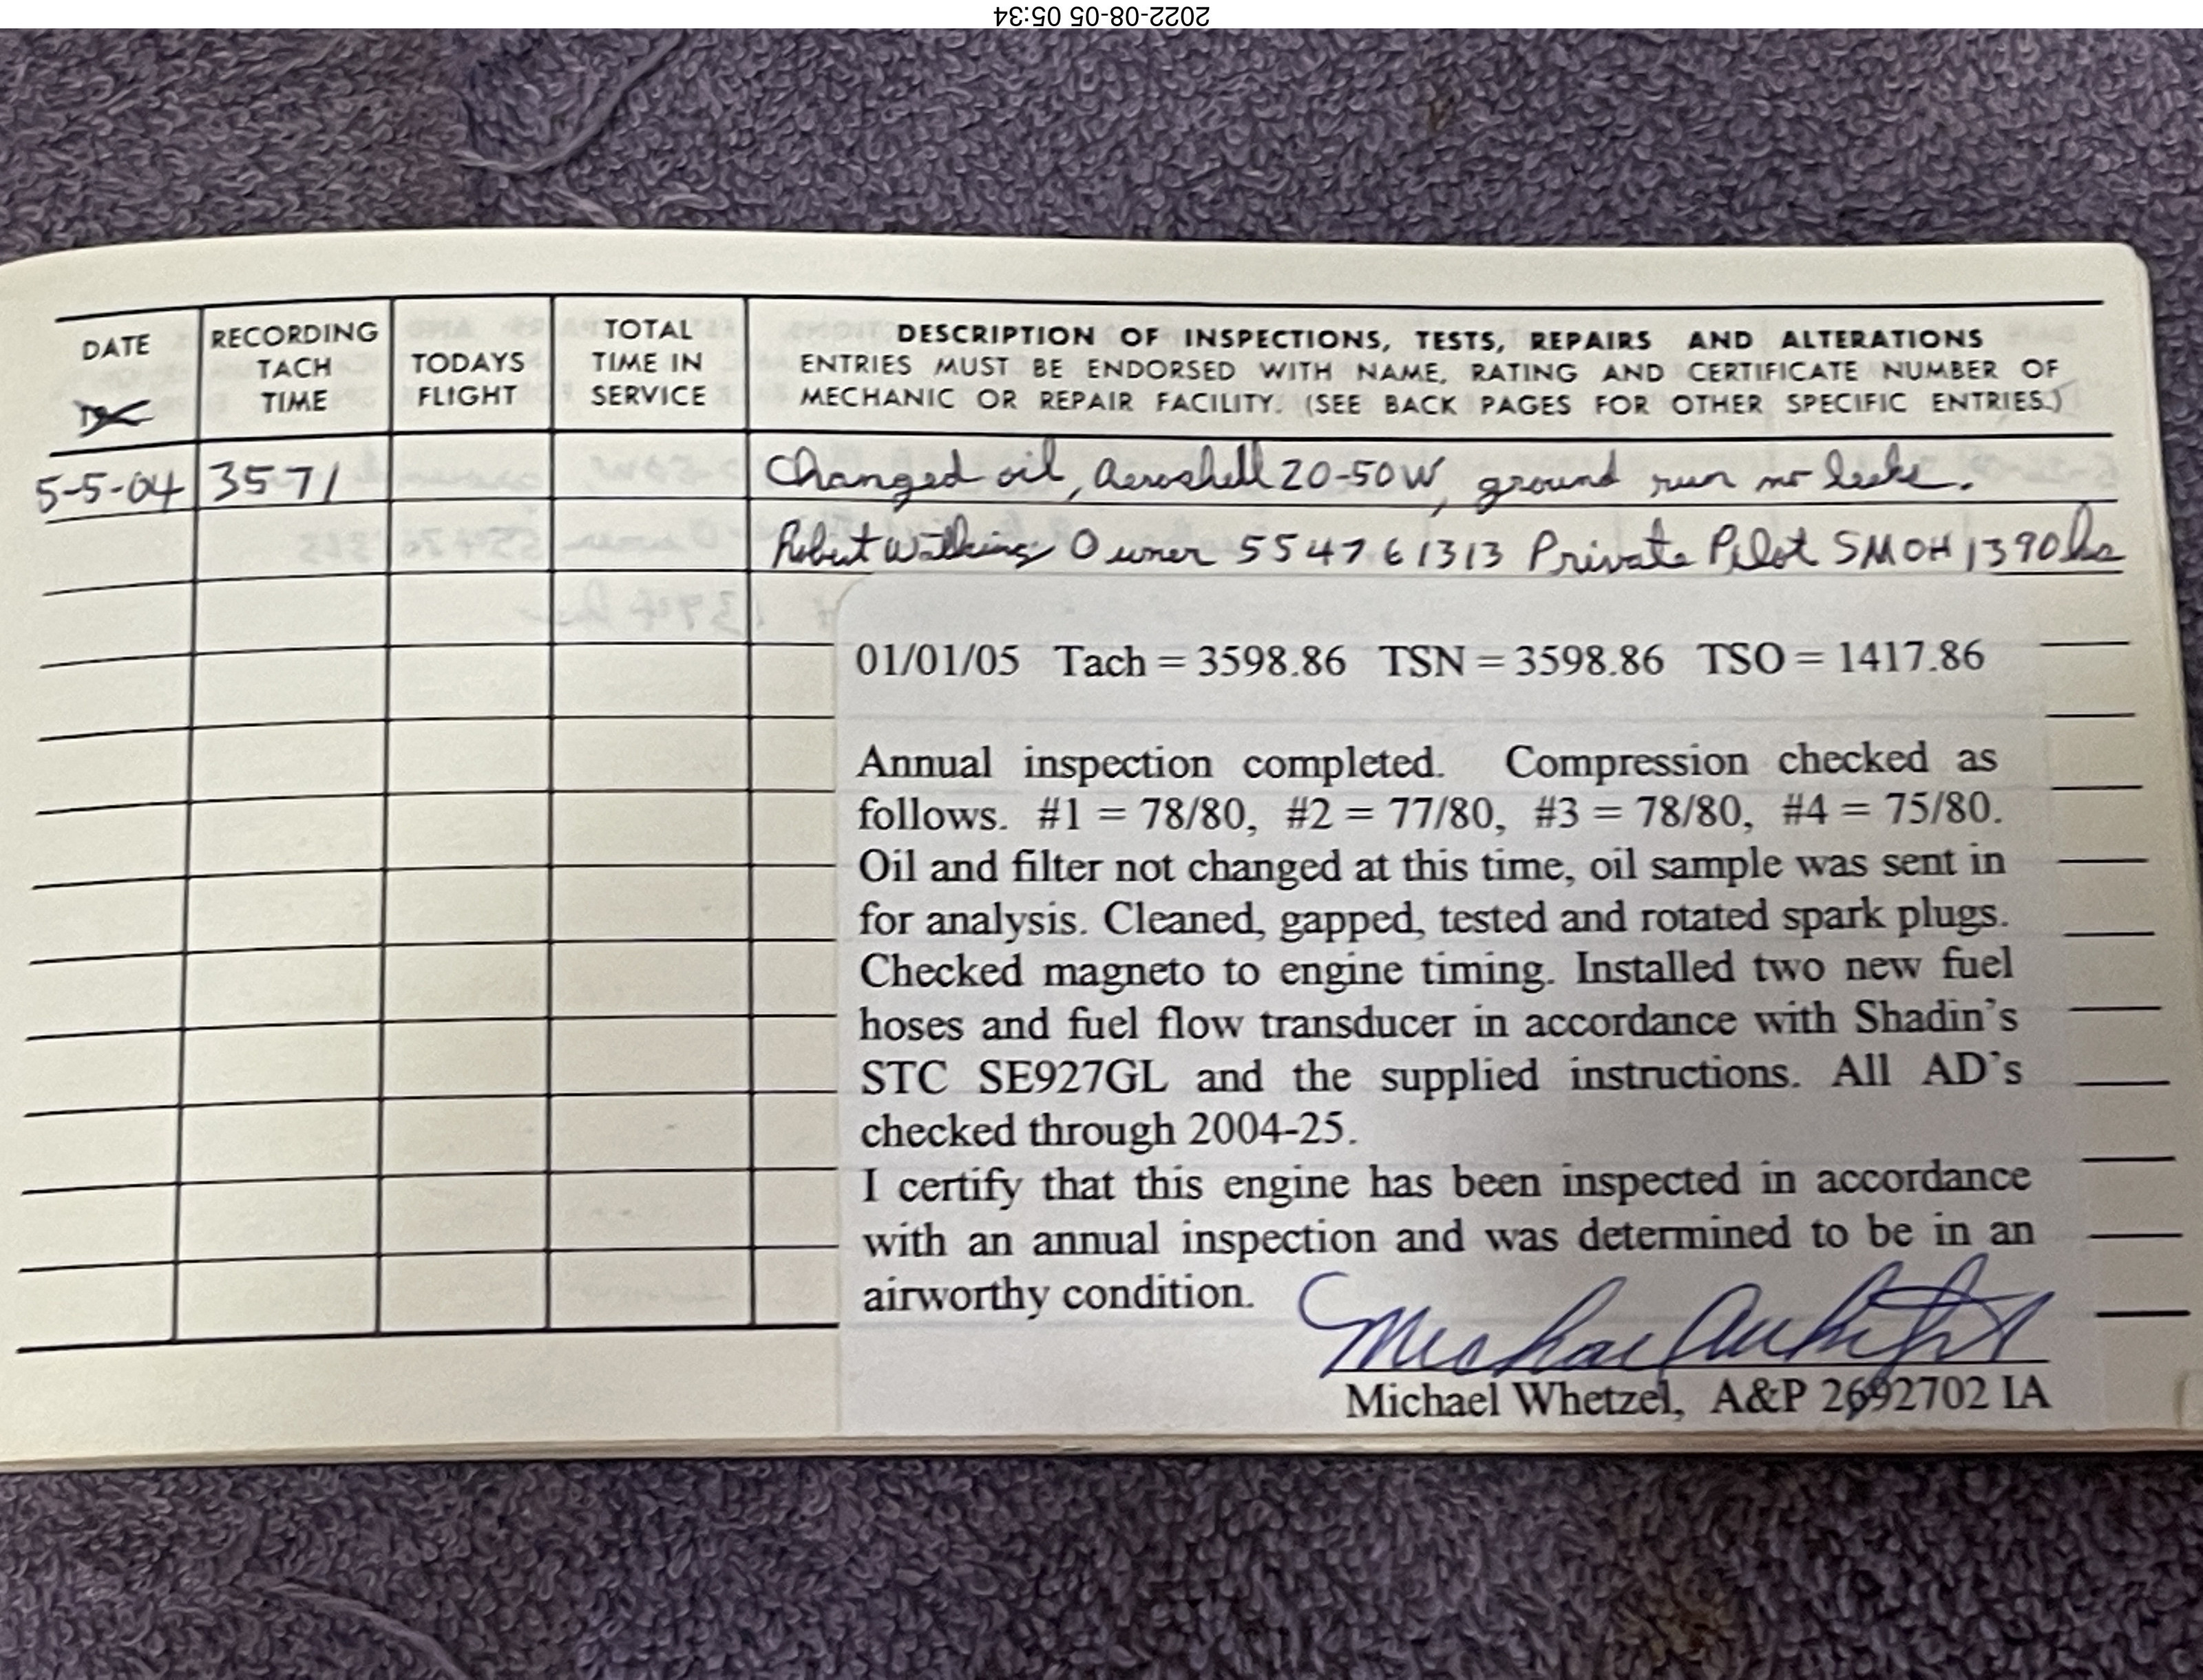 2022-08-05 05:34
DATE
RECORDING TACH TIME
TODAYS FLIGHT
TOTAL TIME IN SERVICE
DESCRIPTION OF INSPECTIONS, TESTS, REPAIRS AND ALTERATIONS
ENTRIES MUST BE ENDORSED WITH NAME, RATING AND CERTIFICATE NUMBER OF
MECHANIC OR REPAIR FACILITY. (SEE BACK PAGES FOR OTHER SPECIFIC ENTRIES.)
5-5-04 3571 Changed oil, Aeroshell 20-50W, ground run no leeks.
Robert Watkins Owner 554761313 Private Pilot SMOH 1390 hrs
01/01/05 Tach = 3598.86 TSN = 3598.86 TSO = 1417.86
Annual inspection completed. Compression checked as
follows. #1 = 78/80, #2 = 77/80, #3 = 78/80, #4 = 75/80.
Oil and filter not changed at this time, oil sample was sent in
for analysis. Cleaned, gapped, tested and rotated spark plugs.
Checked magneto to engine timing. Installed two new fuel
hoses and fuel flow transducer in accordance with Shadin's
STC SE927GL and the supplied instructions. All AD's
checked through 2004-25.
I certify that this engine has been inspected in accordance
with an annual inspection and was determined to be in an
airworthy condition.
Michael Whetzel, A&P 2692702 IA